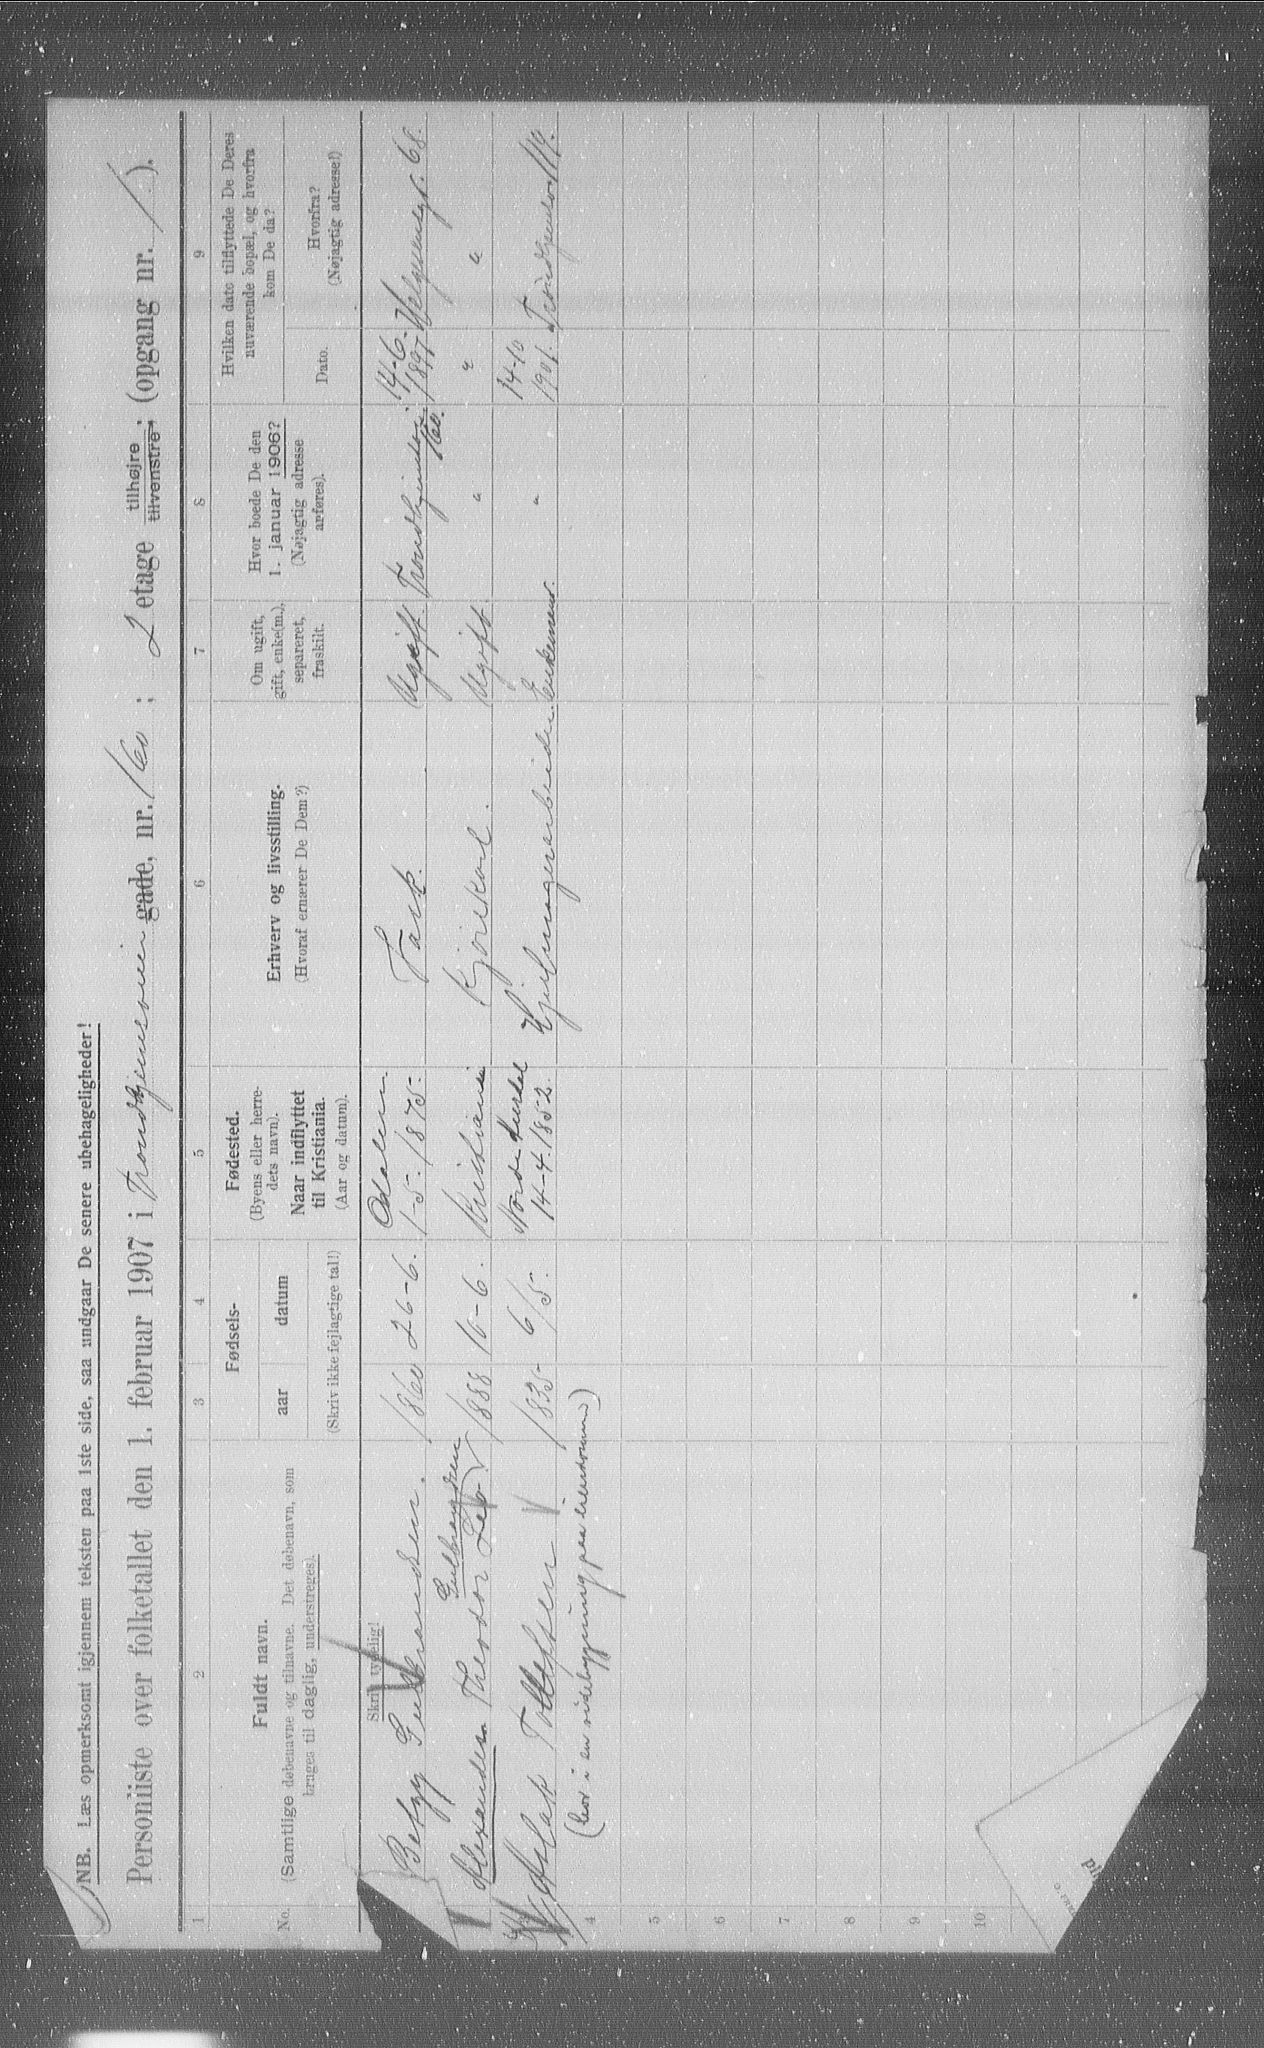 NB. Læs opmerksomt igjennem teksten paa 1ste side, saa undgaar De senere ubehageligheder!
Personliste over folketallet den 1. februar 1907 i Trondhjemsveien gade, nr. 160 ; 2 etage tilhøjre tilvenstre, (opgang nr. / ).
1 2 3 4 5 6 7 8 9
No.
Fuldt navn.
(Samtlige døbenavne og tilnavne. Det døbenavn, som
bruges til daglig, understreges).
Fødsels-
aar datum
(Skriv ikke fejlagtige tal!)
Fødested.
(Byens eller herre-
dets navn).
Naar indflyttet
til Kristiania.
(Aar og datum).
Erhverv og livsstilling.
(Hvoraf ernærer De Dem?)
Om ugift,
gift, enke(m.),
separeret,
fraskilt.
Hvor boede De den
1. januar 1906?
(Nøjagtig adresse
anføres).
Hvilken dato tilflyttede De Deres
nuværende bopæl, og hvorfra
kom De da?
Dato.
Hvorfra?
(Nøjagtig adresse!)
Skriv tydelig!
Betzy Gulbrandsen. 1860 26-6. Odalen 1-5-1875- Vask. Ugift. Trondhjemsvei 160. 14-6-1897 Helgesensgt. 68.
Alexander Theodor Gulbrandsen 1888 10-6. Kristiania Kjørekarl. Ugift. " " "
Aslak Tollefsen 1835- 6/5- Nordre Aurdal 14-4-1852. Hjulmagerarbeider. Enkemand. " 14-10 1901. Trondhjemsv. 119.
(bor i en sidebygning paa eiendommen)
4
5
6
7
8
9
10